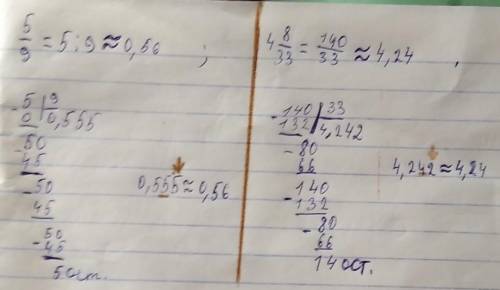 5/9 = 5 : 9 ≈ 0,56 ;
- 5 | 9
0 | 0,555
- 50
45
- 50
45
- 50
45
5 ост.
0,555 ≈ 0,56
4 8/33 = 140/33 ≈ 4,24 ,
- 140 | 33
132 | 4,242
- 80
66
- 140
- 132
- 80
66
14 ост.
4,242 ≈ 4,24